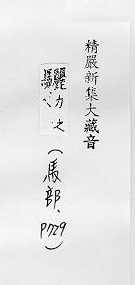 精嚴新集大藏音
驪力之
(馬部、
P729)